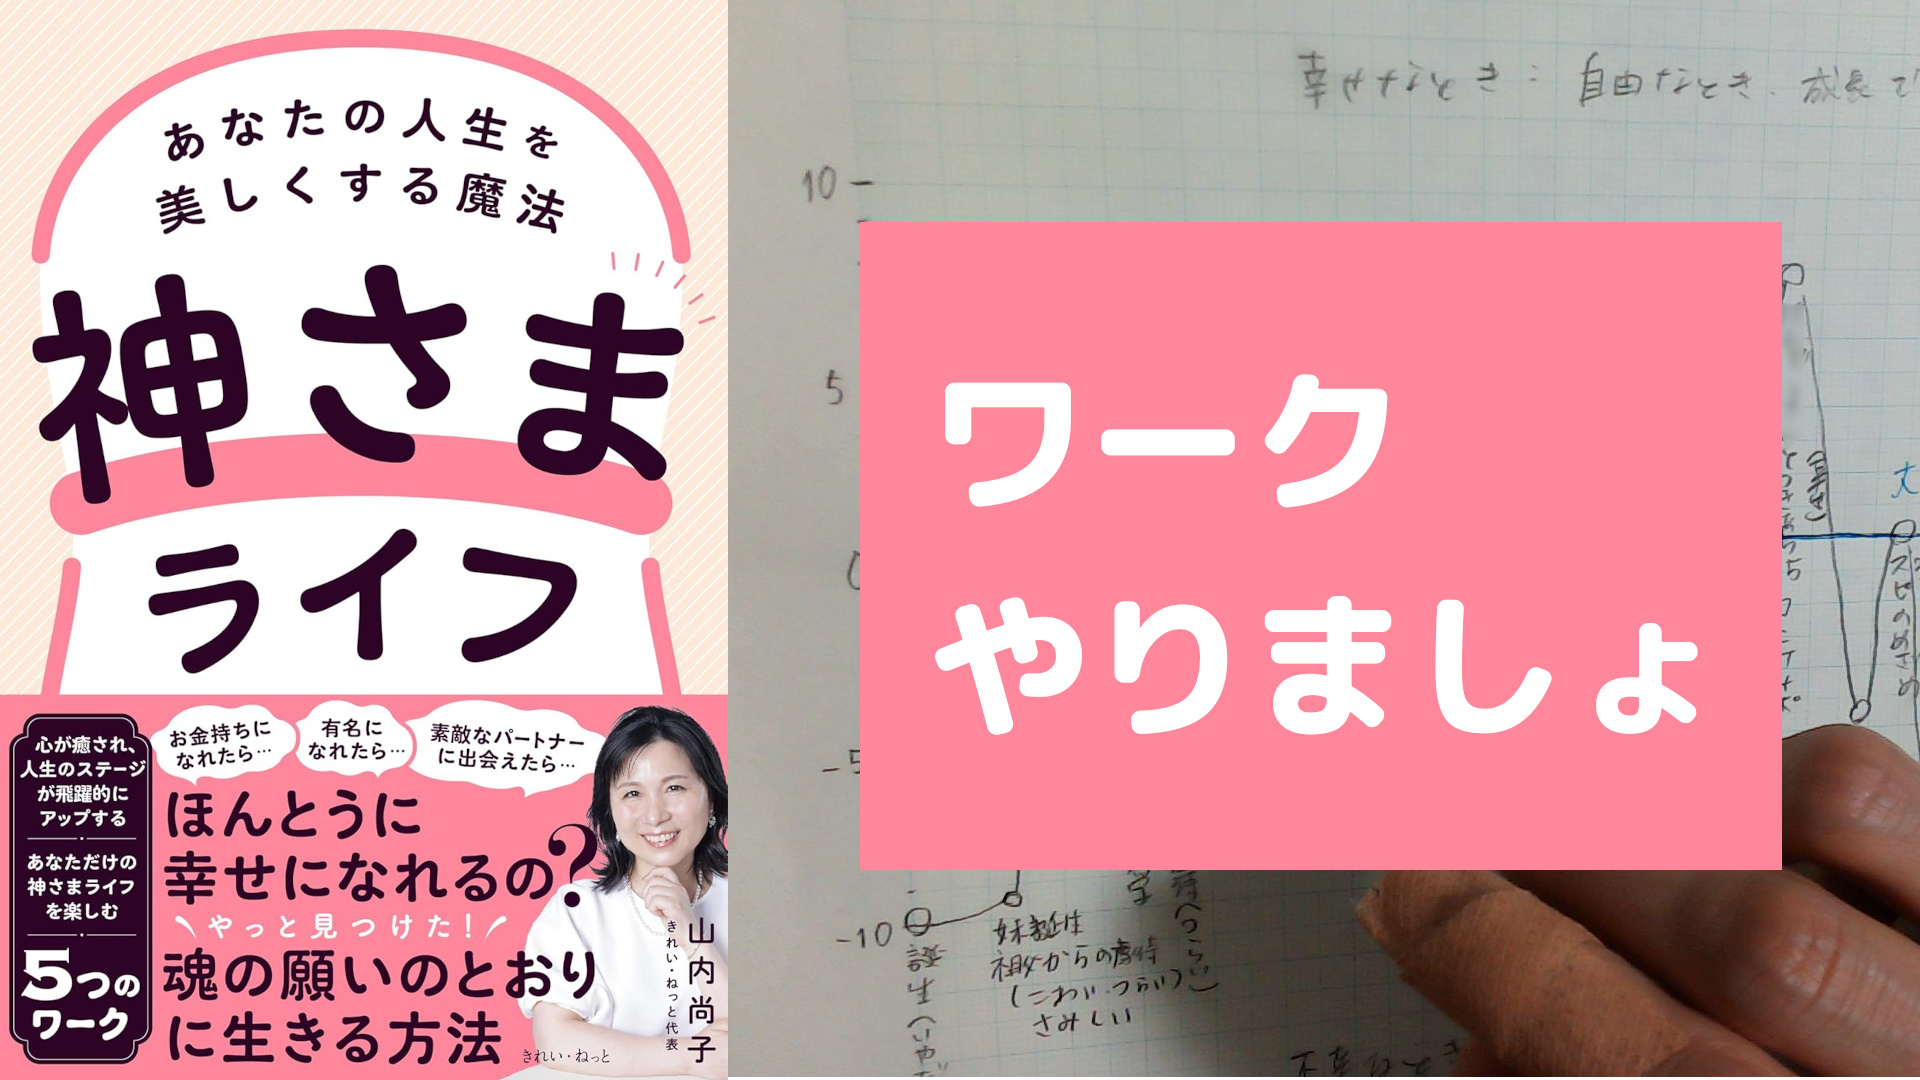 あなたの人生を
美しくする魔法
神さま
ライフ
心が癒され、
人生のステージ
が飛躍的に
アップする
あなただけの
神さまライフ
を楽しむ
5つの
ワーク
お金持ちに
なれたら…
有名に
なれたら…
素敵なパートナー
に出会えたら…
ほんとうに
幸せになれるの?
やっと見つけた!
魂の願いのとおり
に生きる方法
山内尚子
きれい・ねっと代表
きれい・ねっと
幸せなとき: 自由なとき、成長で
10
5
ワーク
やりましょ
-5
-10
誕生
妹誕生
祖父からの虐待
(こわい・つらい)
さみしい